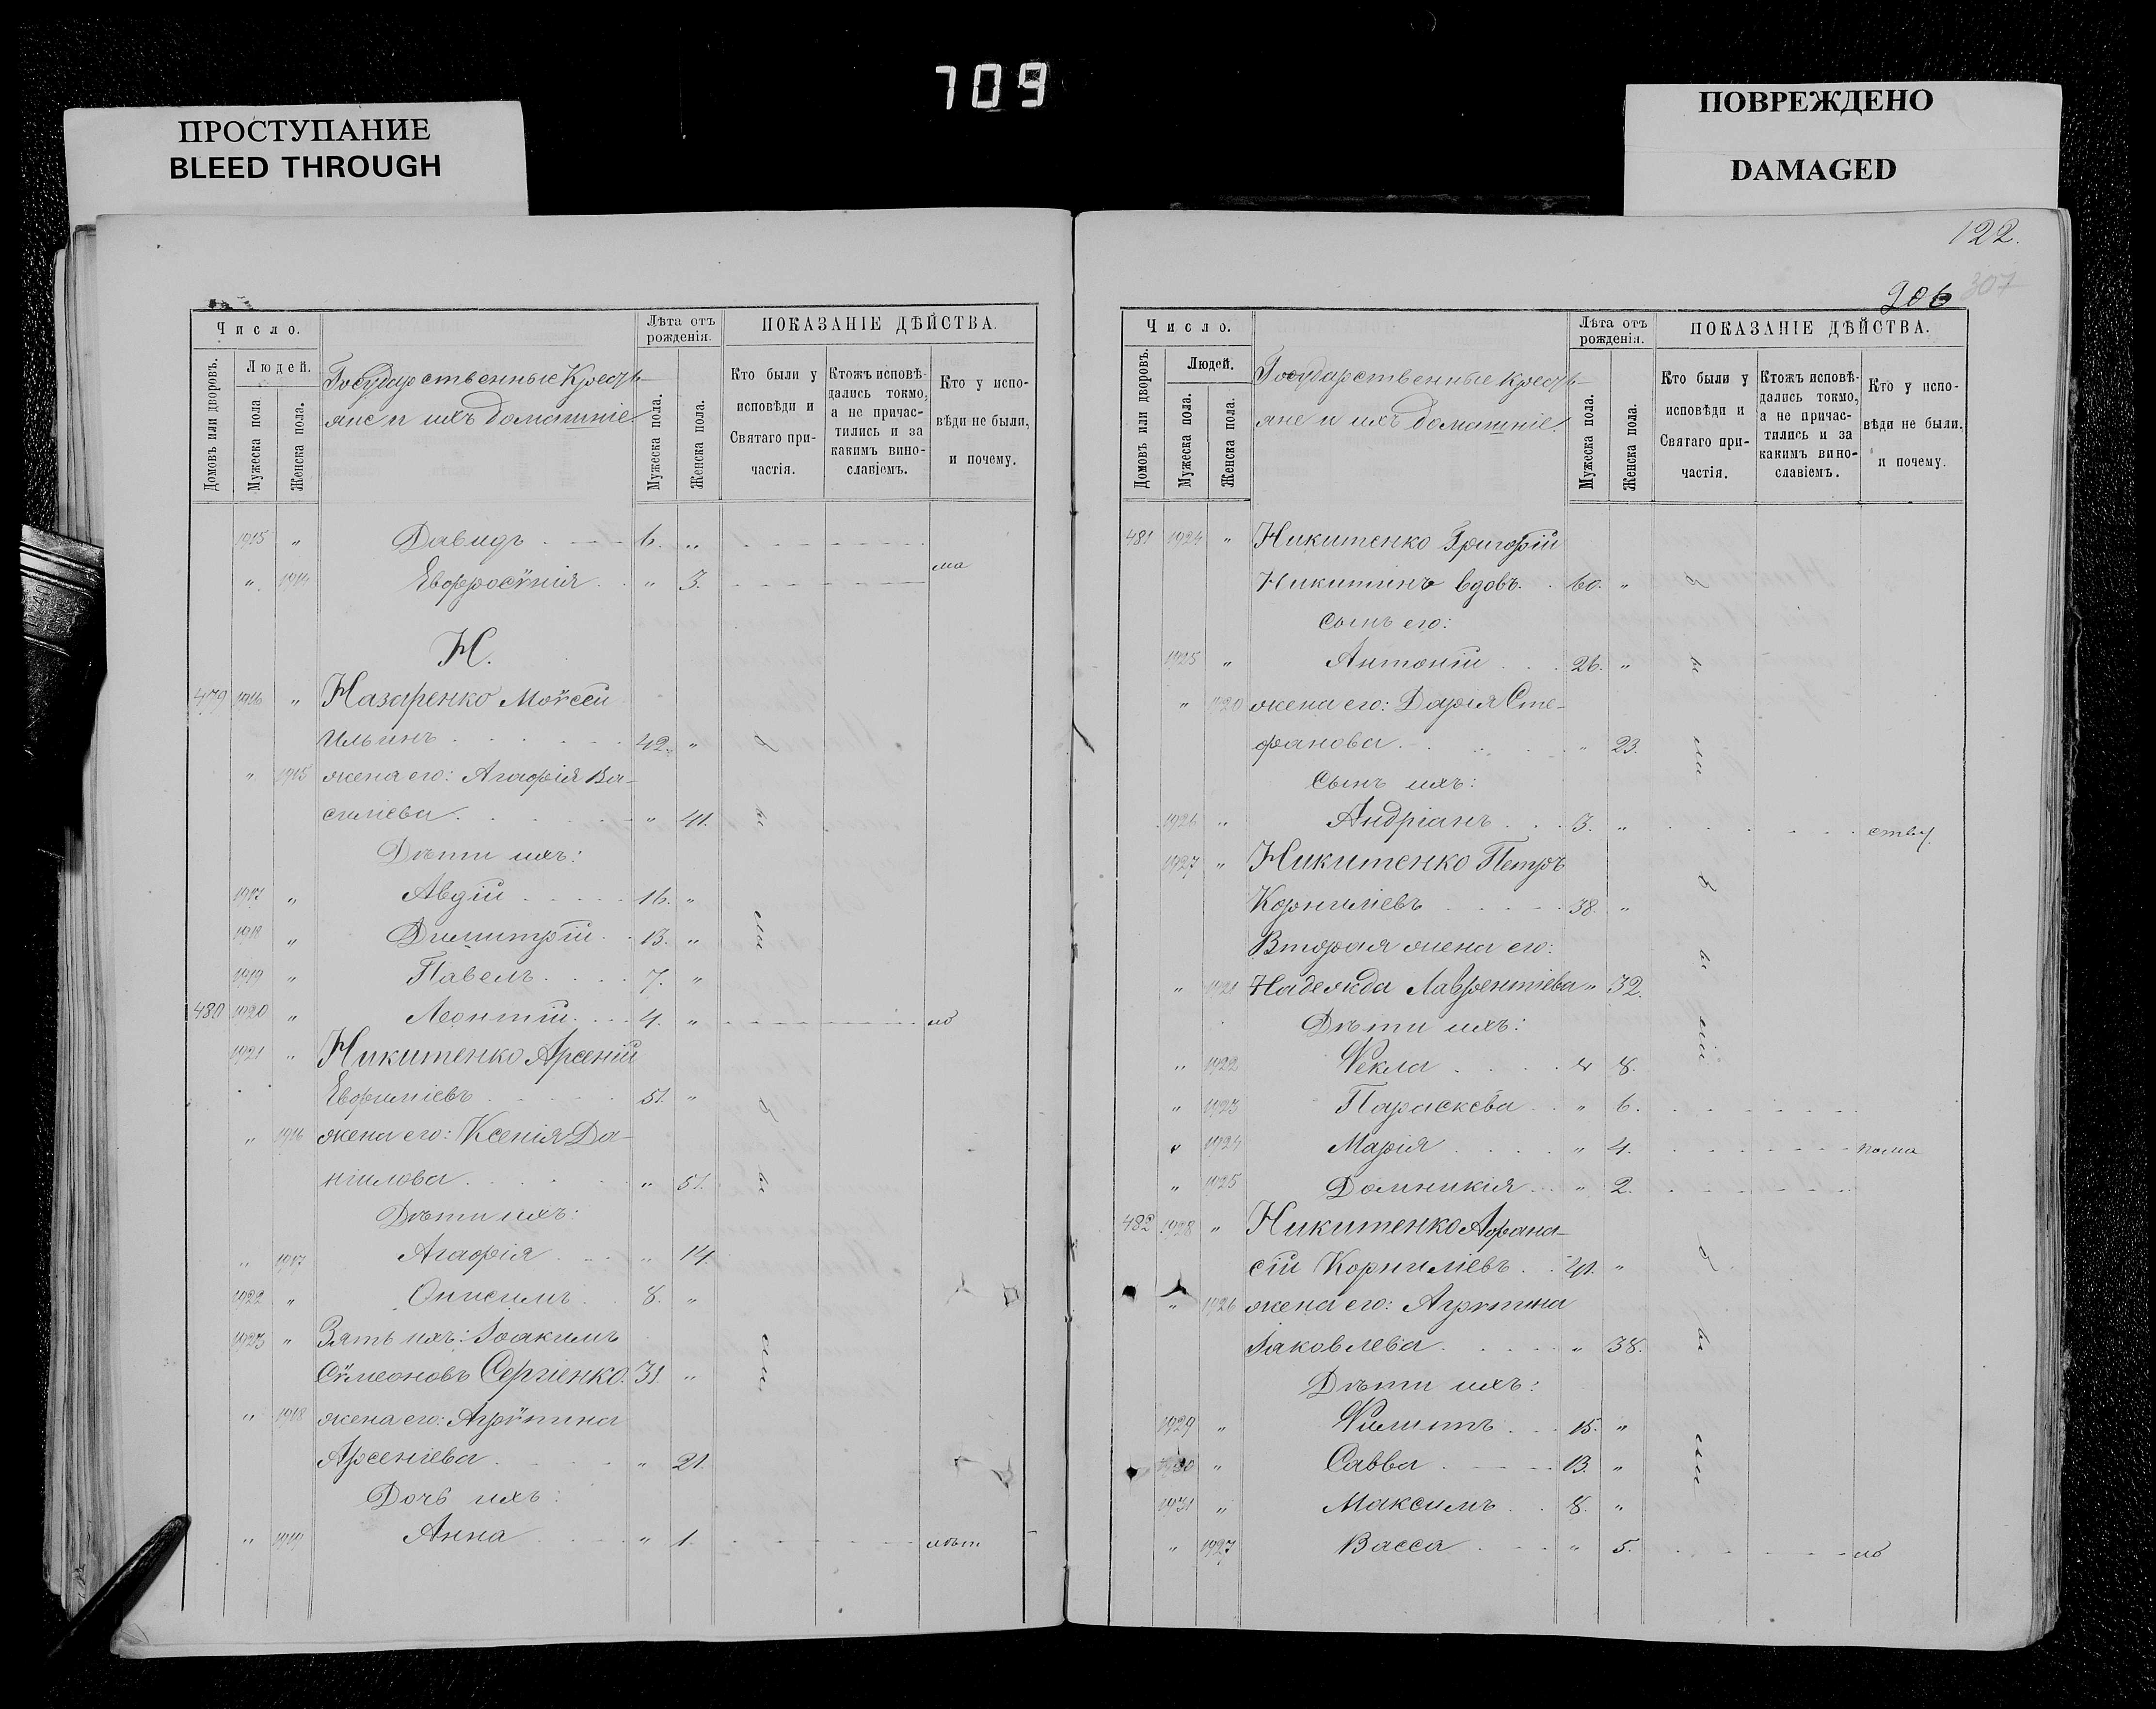 709
ПРОСТУПАНИЕ
BLEED THROUGH
ПОВРЕЖДЕНО
DAMAGED
Число.
Лѣта отъ рожденія.
ПОКАЗАНІЕ ДѢЙСТВА.
Домовъ или дворовъ.
Людей.
Мужеска пола
Женска пола.
Государственные Кресть-
яне и ихъ домашніе.
Мужеска пола.
Женска пола.
Кто были у исповѣди и Святаго при-частія.
Ктожъ исповѣ-дались токмо, а не причас-тились и за какимъ вино-славіемъ.
Кто у испо-вѣди не были, и почему.
1915 " Давидъ 6. "
" 1914 Евфросѵнія " 3. ма
Н.
479 1916 " Назаренко Моѵсей
Ильинъ 42. " б
" 1915 жена его: Агафія Ва-
силіева " 41. ы
Дѣти ихъ:
1917 " Авдій 16. "
1918 " Димитрій 13. " ли
1919 " Павелъ 7. "
480 1920 " Леонтій 4. " ло
1921 " Никитенко Арсеній
Евфиміевъ 51. " б
" 1916 жена его: Ксенія Да-
ніилова " 51. ы
Дѣти ихъ:
" 1917 Агафія " 14.
1922 " Онисимъ 8. "
1923 " Зять ихъ: Іоакимъ
Сѵмеоновъ Сергіенко. 31. " ли
" 1918 жена его: Агрѵпина
Арсеніева " 21.
Дочь ихъ:
" 1919 Анна " 1. лѣт
122.
906 307
Число.
Лѣта отъ рожденія.
ПОКАЗАНІЕ ДѢЙСТВА.
Домовъ или дворовъ.
Людей.
Мужеска пола.
Женска пола.
Государственные кресть-
яне и ихъ домашніе.
Мужеска пола.
Женска пола.
Кто были у исповѣди и Святаго при-частія.
Ктожъ исповѣ-дались токмо, а не причас-тились и за какимъ вино-славіемъ.
Кто у испо-вѣди не были. и почему.
481 1924 " Никитенко Григорій
Никитинъ вдовъ. 60. " б
Сынъ его:
1925 " Антоній 26. " ы
" 1920 жена его: Дарія Сте-
фанова " 23. ли
Сынъ ихъ:
1926 " Андріанъ 3. " ству
1927 " Никитенко Петръ
Корниліевъ 38. " б
Вторая жена его:
" 1921 Надежда Лаврентіева " 32. ы
Дѣти ихъ:
" 1922 Ѳекла " 8. ли
" 1923 Параскева " 6.
" 1924 Марія " 4.
" 1925 Домникія " 2.
482 1928 " Никитенко Афана-
сій Корниліевъ 41. " б
" 1926 жена его: Агрѵпина
Іаковлева " 38. ы
Дѣти ихъ:
1929 " Филиппъ 15. "
1930 " Савва 13. " ли
1931 " Максимъ 8. "
" 1927 Васса " 5. ло